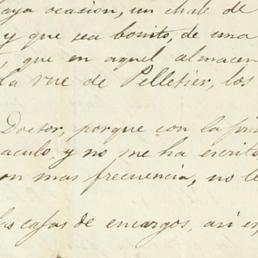 haya ocasion, un chale de
y que sea bonito, de una
, que en aquel almacen
la rue de Pelletier, los
Doctor, porque con la
aculo, y no me ha escrito
on mas frecuencia, no le
las cajas de encargos, asi es,